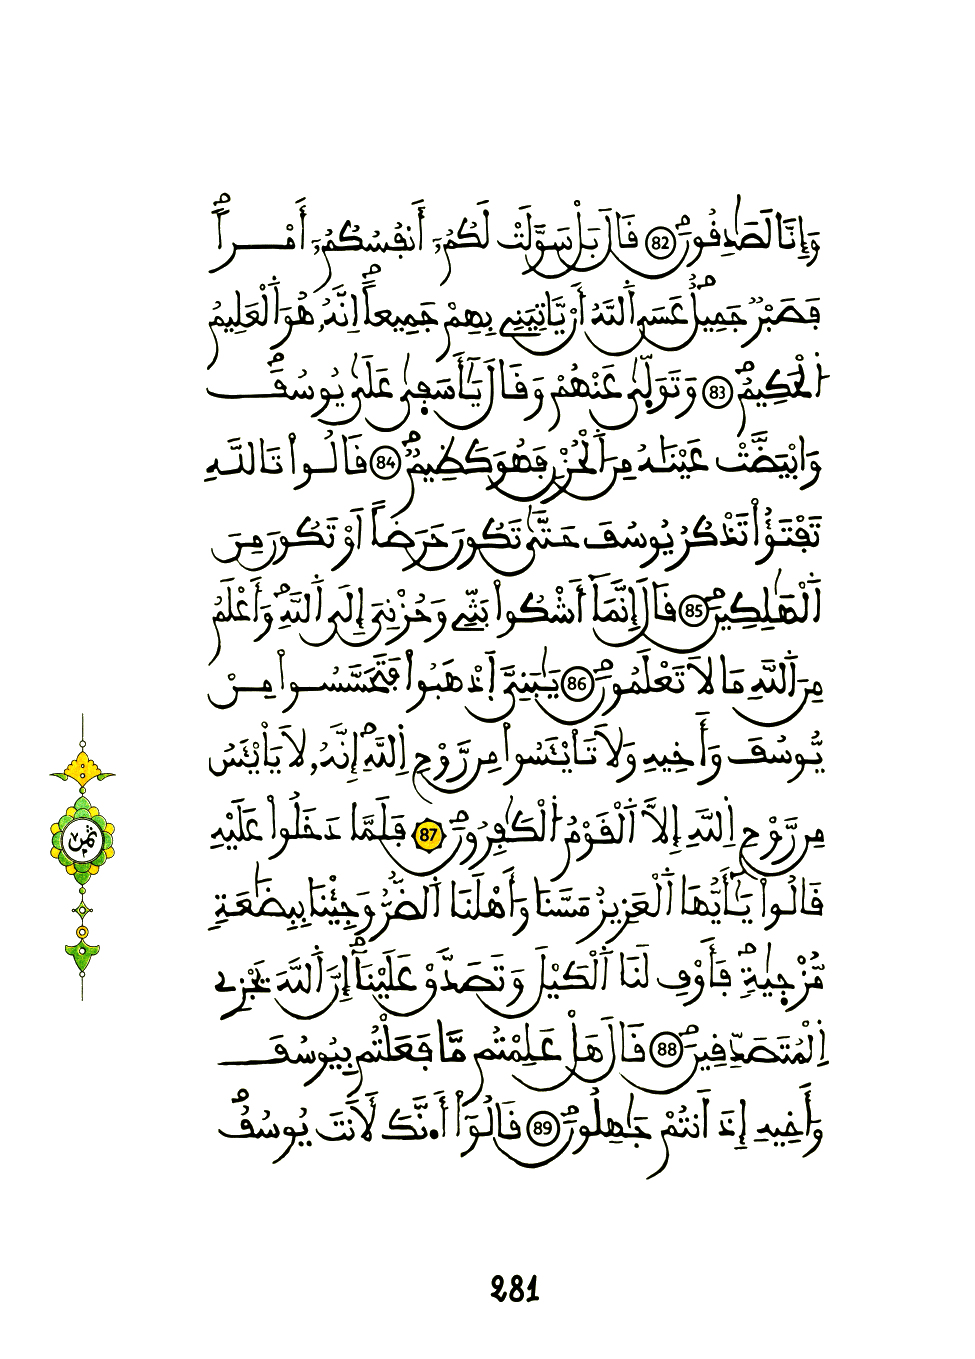 وَإِنَّا لَصَٰدِقُونَۖ 82 قَالَ بَلْ سَوَّلَتْ لَكُمُۥٓ أَنفُسُكُمُۥٓ أَمْراٗۖ
فَصَبْرٞ جَمِيلٌۖ عَسَى اَ۬للَّهُ أَنْ يَّاتِيَنِے بِهِمْ جَمِيعاًۖ اِنَّهُۥ هُوَ اَ۬لْعَلِيمُ
اُ۬لْحَكِيمُۖ 83 وَتَوَلّ۪ىٰ عَنْهُمْ وَقَالَ يَٰٓأَسَف۪ىٰ عَلَىٰ يُوسُفَۖ
وَابْيَضَّتْ عَيْنَٰهُ مِنَ اَ۬لْحُزْنِ فَهُوَ كَظِيمٞۖ 84 قَالُواْ تَاللَّهِ
تَفْتَؤُاْ تَذْكُرُ يُوسُفَ حَتَّىٰ تَكُونَ حَرَضاً اَوْ تَكُونَ مِنَ
اَ۬لْهَٰلِكِينَۖ 85 قَالَ إِنَّمَآ أَشْكُواْ بَثِّے وَحُزْنِيَ إِلَى اَ۬للَّهِۖ وَأَعْلَمُ
مِنَ اَ۬للَّهِ مَا لَا تَعْلَمُونَۖ 86 يَٰبَنِيَّ اَ۪ذْهَبُواْ فَتَحَسَّسُواْ مِنْ
يُّوسُفَ وَأَخِيهِ وَلَا تَاْيْـَٔسُواْ مِن رَّوْحِ اِ۬للَّهِۖ إِنَّهُۥ لَا يَاْيْـَٔسُ
مِن رَّوْحِ اِ۬للَّهِ إِلَّا اَ۬لْقَوْمُ اُ۬لْكَٰفِرُونَۖ 87 فَلَمَّا دَخَلُواْ عَلَيْهِ
قَالُواْ يَٰٓأَيُّهَا اَ۬لْعَزِيزُ مَسَّنَا وَأَهْلَنَا اَ۬لضُّرُّ وَجِئْنَا بِبِضَٰعَةٖ
مُّزْج۪يٰةٖۖ فَأَوْفِ لَنَا اَ۬لْكَيْلَ وَتَصَدَّقْ عَلَيْنَآۖ إِنَّ اَ۬للَّهَ يَجْزِے
اِ۬لْمُتَصَدِّقِينَۖ 88 قَالَ هَلْ عَلِمْتُم مَّا فَعَلْتُم بِيُوسُفَ
وَأَخِيهِ إِذَ اَنتُمْ جَٰهِلُونَۖ 89 قَالُوٓاْ أَ.نَّكَ لَأَنتَ يُوسُفُۖ
ثمن
281